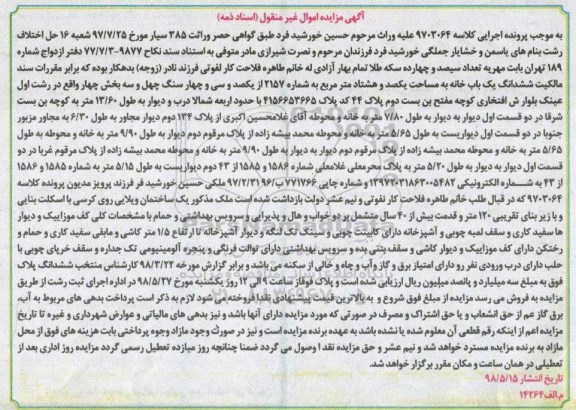 آگهی مزایده اموال غیر منقول (اسناد ذمه)
به موجب پرونده اجرایی کلاسه ۹۷۰۳۰۶۴ علیه وراث مرحوم حسین خورشید فرد طبق گواهی حصر وراثت ۳۸۵ سیار مورخ ۹۷/۷/۲۵ شعبه ۱۶ حل اختلاف
رشت بنام های یاسمن و خشایار جملگی خورشید فرد فرزندان مرحوم و نصرت شیرازی مادر متوفی به استناد سند نکاح ۹۸۷۷-۷۷/۷/۳ دفتر ازدواج شماره
۱۸۹ تهران بابت مهریه تعداد سیصد و چهارده سکه طلا تمام بهار آزادی له خانم طاهره فلاحت کار لفوتی فرزند نادر (زوجه) بدهکار بوده که برابر مقررات سند
مالکیت ششدانگ یک باب خانه به مساحت یکصد و هشتاد متر مربع به شماره ۲۱۵۷ از یکصد و سی و چهار سنگ چهل و سه بخش چهار واقع در رشت
عینک بلوار ش افتخاری کوچه مفتح بن بست دوم پلاک ۴۴ کد پلاک ۴۱۵۶۶۵۳۶۶۵ با حدود اربعه شمالا درب و دیوار به طول ۱۳/۶۰ متر به کوچه بن بست
شرقا در دو قسمت اول دیوار به دیوار به طول ۷/۸۰ متر به خانه و محوطه آقای غلامحسین اکبری از پلاک ۱۳۴ دوم دیوار مجاور به طول ۶/۳۰ به مجاور مزبور
جنوبا در دو قسمت اول دیواریست به طول ۵/۶۵ متر به خانه و محوطه محمد بیشه زاده از پلاک مرقوم دوم دیوار به دیوار به طول ۹/۹۰ متر به خانه و محوطه
۵/۶۵ متر به خانه و محوطه محمد بیشه زاده از پلاک مرقوم دوم دیوار به دیوار به طول ۹/۹۰ متر به خانه و محوطه محمد بیشه زاده از پلاک مرقوم غربا در دو
قسمت اول دیوار به دیوار به طول ۵/۲۰ متر به پلاک محرمعلی غلامعلی شماره ۱۵۸۶ و ۱۵۸۵ از ۴۳ دوم دیواریست به طول ۵/۱۵ متر به شماره ۱۵۸۵ و ۱۵۸۶
از ۴۳ به شماره الکترونیکی ۱۳۹۷۲۰۳۱۸۶۳۰۰۵۴۸۲ و شماره چاپی ۷۷۱۷۶۶ ب/۹۷/۲/۳۱۹۶ ملکی حسین خورشید فر فرزند پرویز مدیون پرونده کلاسه
۹۷۰۳۰۶۴ که در قبال طلب خانم طاهره فلاحت کار لفوتی و نیم عشر دولت بازداشت شده است ملک مذکور یک ساختمان ویلایی روی کرسی با اسکلت بنایی
و با زیر بنای تقریبی ۱۲۰ متر و قدمت بیش از ۴۰ سال مشتمل بر دو خواب و هال و پذیرایی و سرویس بهداشتی و حمام با مشخصات کلی کف موزاییک و دیوار
ها سفید کاری و سقف لمبه چوبی و آشپزخانه دارای کابینت چوبی و سینک تک لنگه و دیوار آشپزخانه تا ارتفاع ۱/۵ متر کاشی و مابقی سفید کاری و حمام و
رختکن دارای کف موزاییک و دیوار کاشی و سقف پتنی بده و سرویس بهداشتی دارای توالت فرنگی و پنجره آلومینیومی تک جداره و سقف خرپای چوبی با
حلب دارای درب ورودی نفر رو دارای امتیاز برق و گاز وآب و چاه و خالی از سکنه می باشد و برابر گزارش مورخه ۹۸/۳/۲۲ کارشناس منتخب ششدانگ پلاک
فوق به مبلغ سه میلیارد و پانصد میلیون ریال ارزیابی شده است و پلاک فوق از ساعت ۹ الی ۱۲ روز یکشنبه مورخ ۹۸/۵/۲۷ در اداره اجرای ثبت رشت از طریق
مزایده به فروش می رسد مزایده از مبلغ فوق شروع و به بالاترین قیمت پیشنهادی نقدا فروخته می شود لازم به ذکر است پرداخت بدهی های مربوط به آب،
برق گاز عم از حق انشعاب و یا حق اشتراک و مصرف در صورتی که مورد مزایده دارای آنها باشد و نیز بدهی های مالیاتی و عوارض شهرداری و غیره تا تاریخ
مزایده اعم از اینکه رقم قطعی آن معلوم شده یا نشده باشد به عهده برنده مزایده است و نیز در صورت وجود مازاد وجوه پرداختی بابت هزینه های فوق از محل
مازاد به برنده مزایده مسترد خواهد شد و نیم عشر و حق مزایده نقد ا وصول می گردد ضمنا چنانچه روز میزاده تعطیل رسمی گردد مزایده روز اداری بعد از
تعطیلی در همان ساعت و مکان مقرر برگزار خواهد شد.
تاریخ انتشار ۹۸/۵/۱۵
م.الف ۱۴۲۶۴